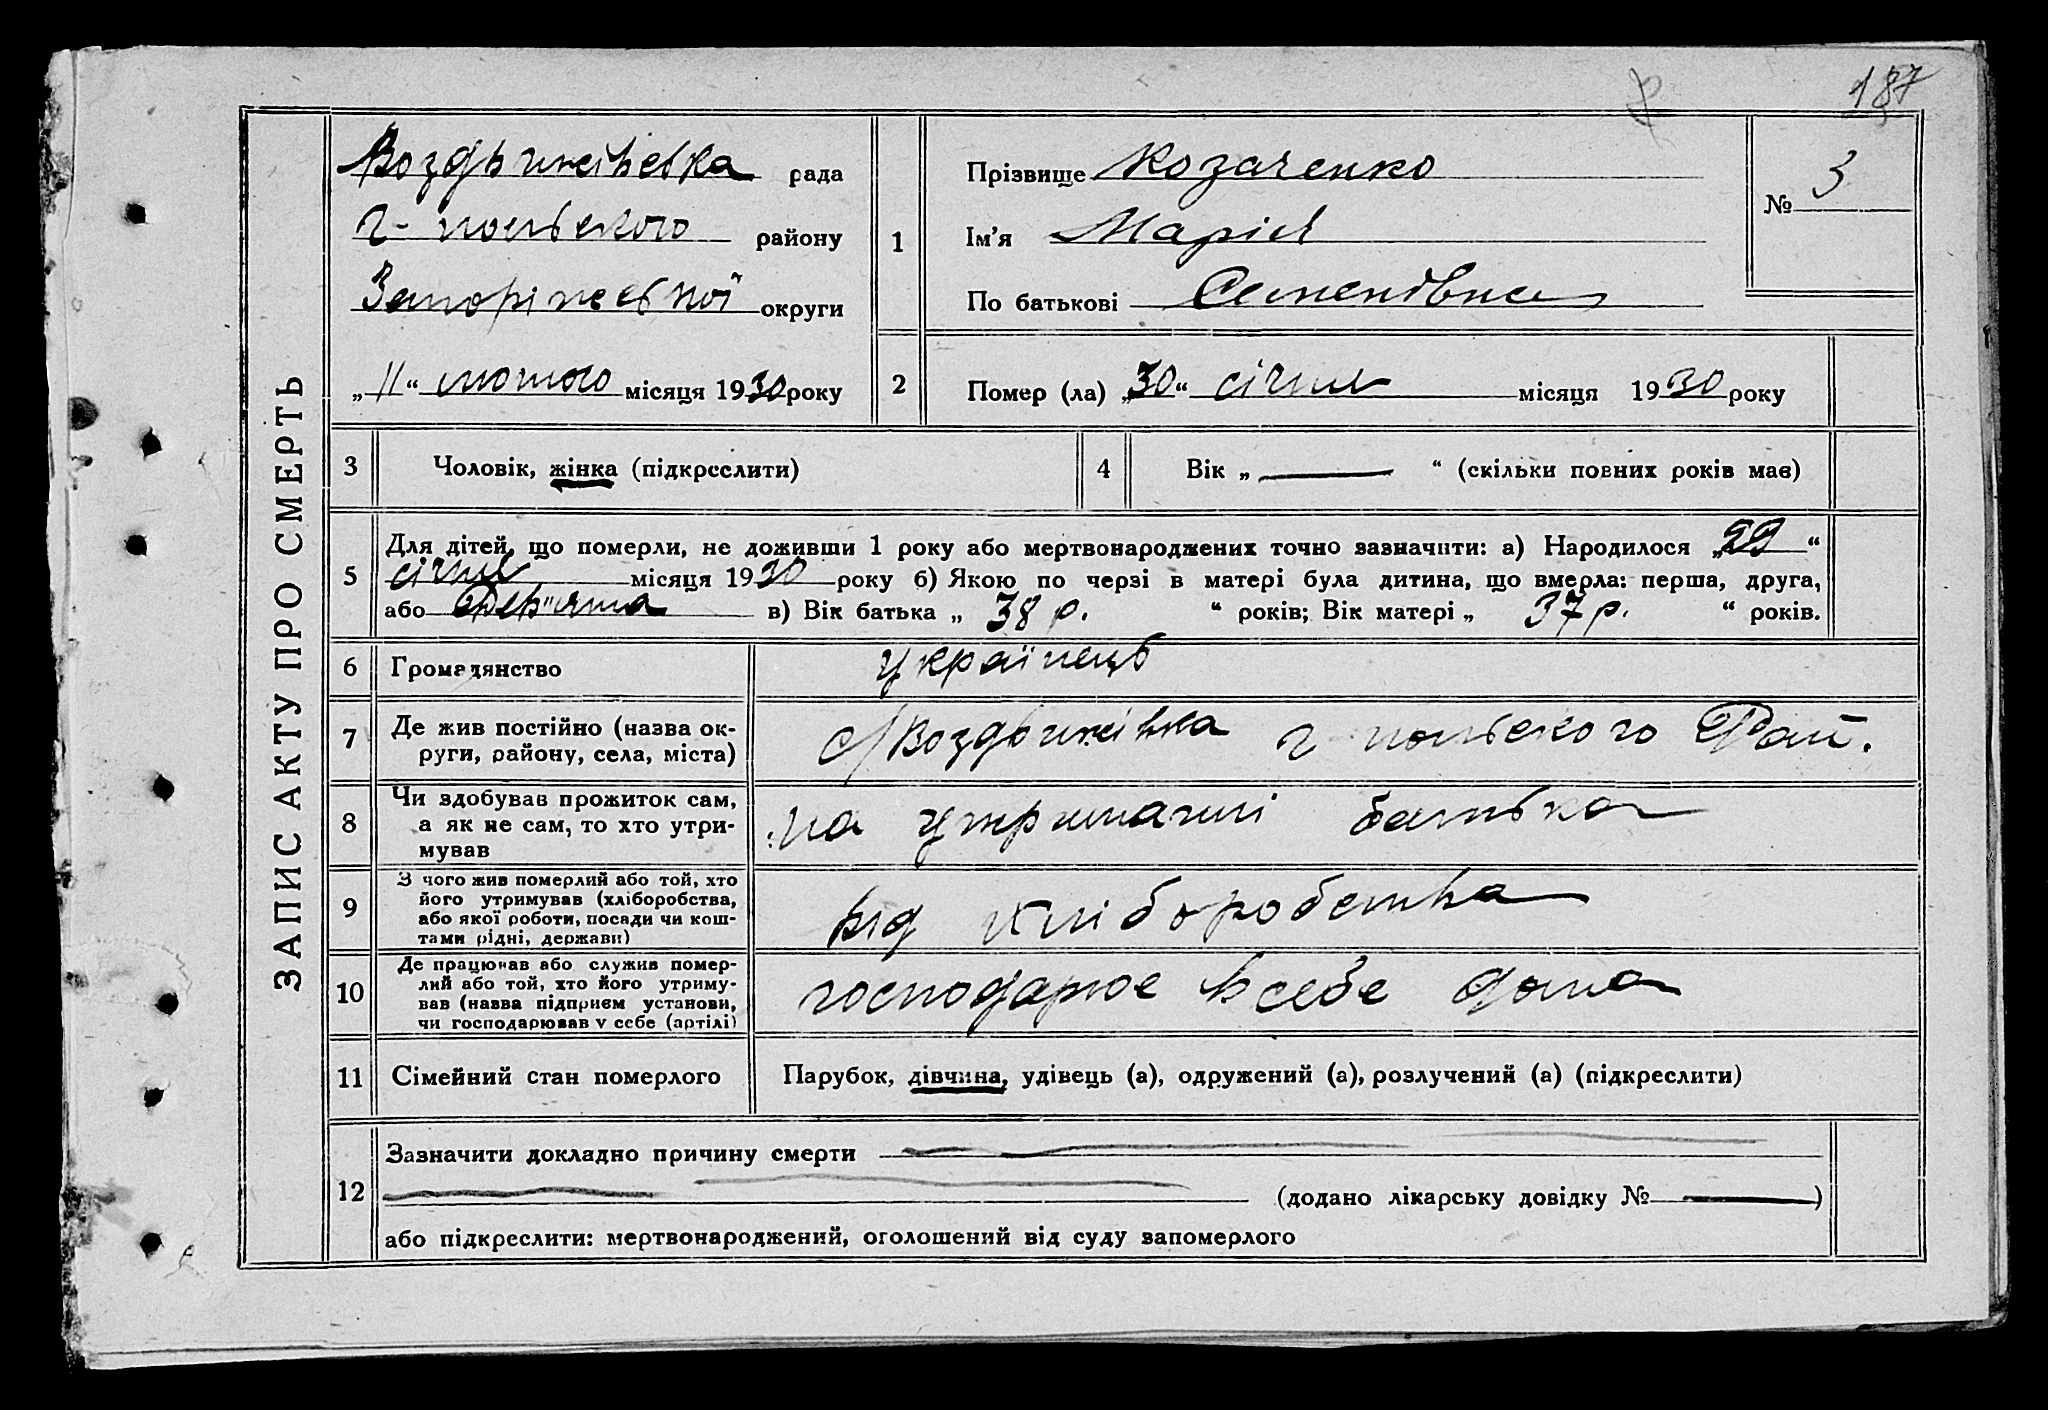 187
ЗАПИС АКТУ ПРО СМЕРТЬ
Воздвижівська рада
Г-польського району
Запоріжської округи
„11“ лютого місяця 1930 року
1
Прізвище Козаченко
Ім'я Марія
По батькові Семенівна
№ 3
2
Помер (ла) „30“ січня місяця 1930 року
3
Чоловік, жінка (підкреслити)
4
Вік „ — “ (скільки повних років має)
5
Для дітей, що померли, не доживши 1 року або мертвонароджених точно зазначити: а) Народилося „29“
січня місяця 1930 року б) Якою по черзі в матері була дитина, що вмерла: перша, друга,
або Дев"ята в) Вік батька „ 38 р. “ років; Вік матері „ 37 р. “ років.
6
Громадянство
українець
7
Де жив постійно (назва ок-
руги, району, села, міста)
с/Воздвижівка Г польського Рай.
8
Чи здобував прожиток сам,
а як не сам, то хто утри-
мував
на утриманні батька
9
З чого жив померлий або той, хто
його утримував (хліборобства,
або якої роботи, посади чи кош-
тами рідні, держави)
від хліборобства
10
Де працював або служив помер-
лий або той, хто його утриму-
вав (назва підприєм установи,
чи господарював у себе (артілі)
господарює в себе дома
11
Сімейний стан померлого
Парубок, дівчина, удівець (а), одружений (а), розлучений (а) (підкреслити)
12
Зазначити докладно причину смерти —
— (додано лікарську довідку № — )
або підкреслити: мертвонароджений, оголошений від суду запомерлого